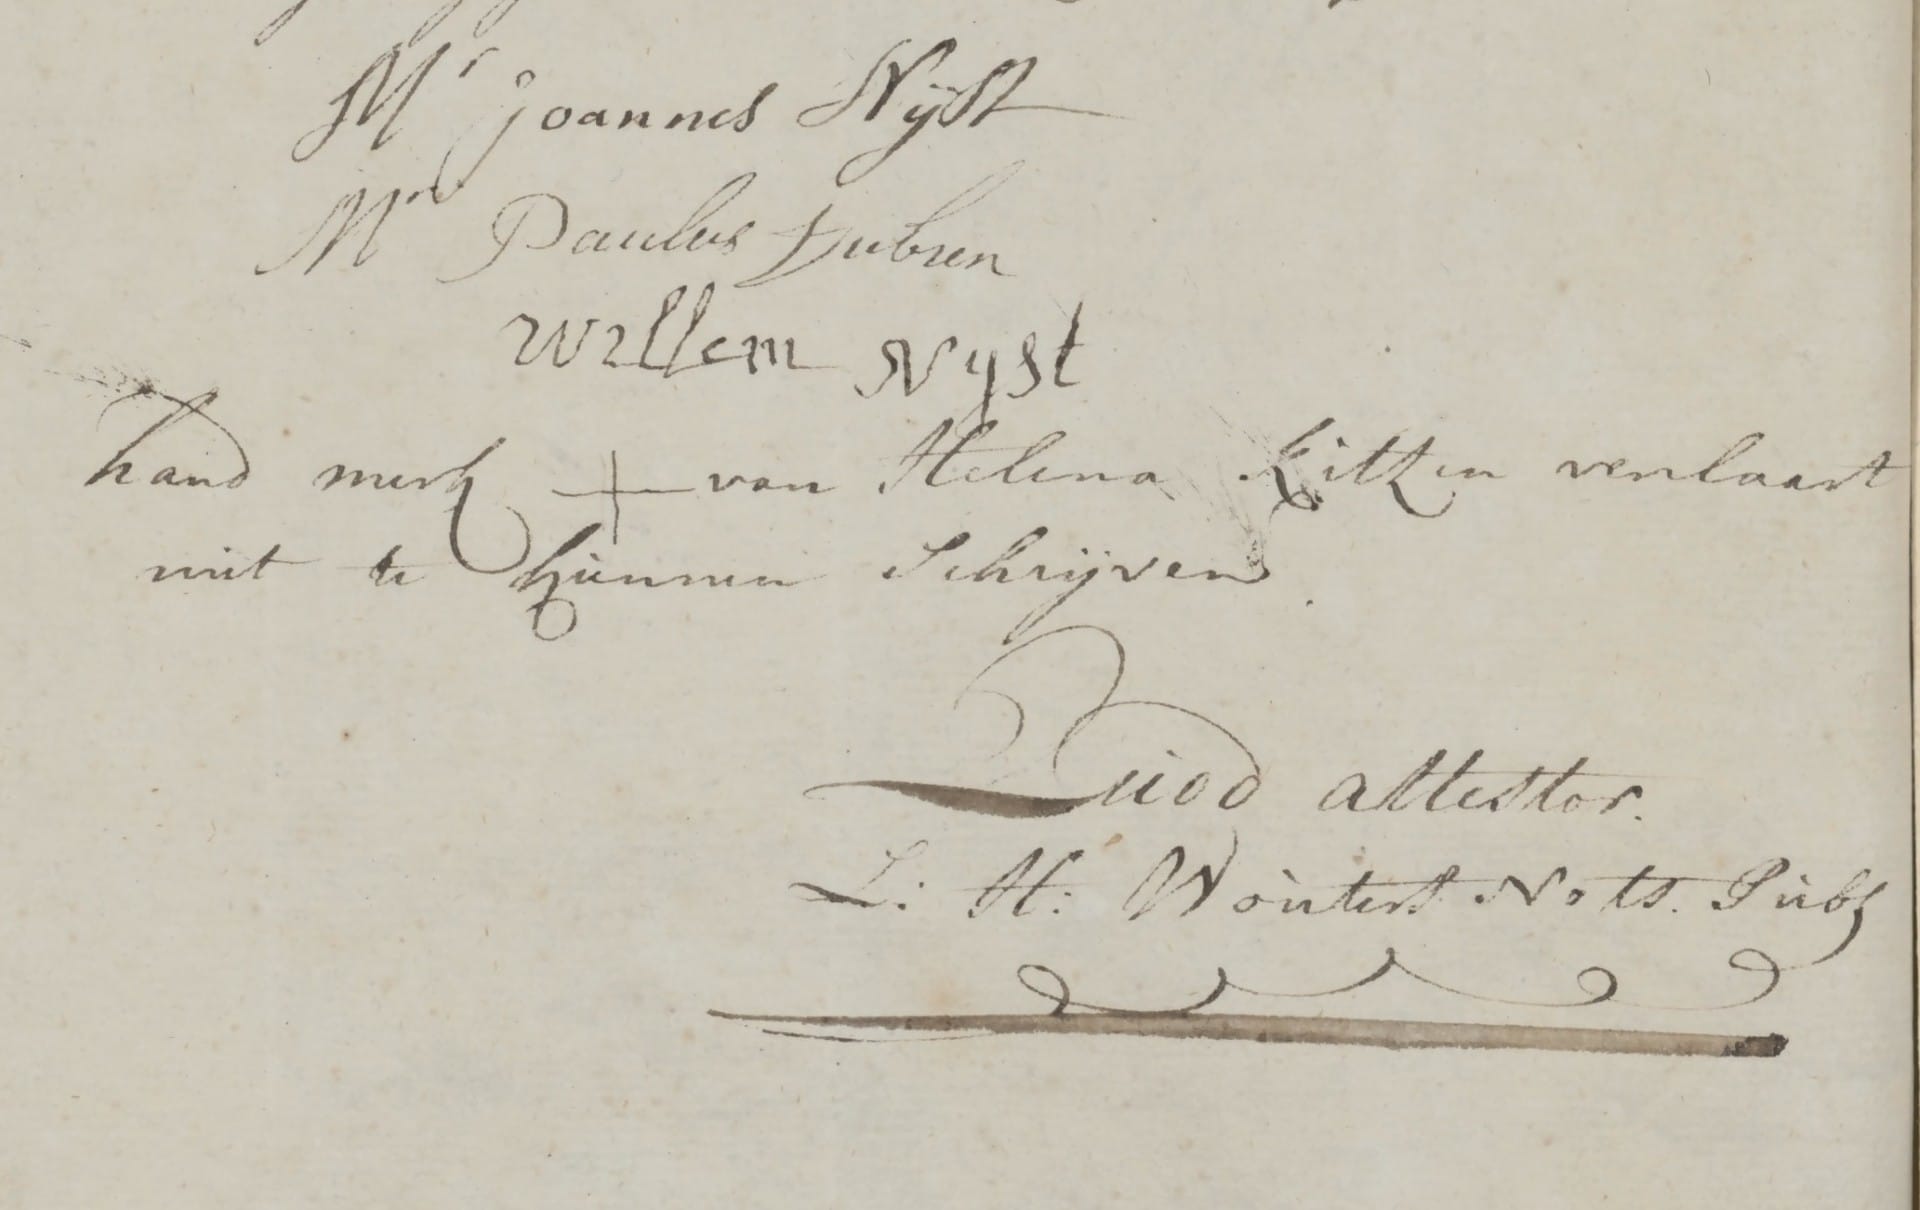 Mr Joannes Nijst
Mr Paulus Dubren
Willem Nyst
hand merk + van Helena kitzen verlaart
niet te kunnen Schrijven.
Quod attestor.
L: H: Wouters Nots. Pub